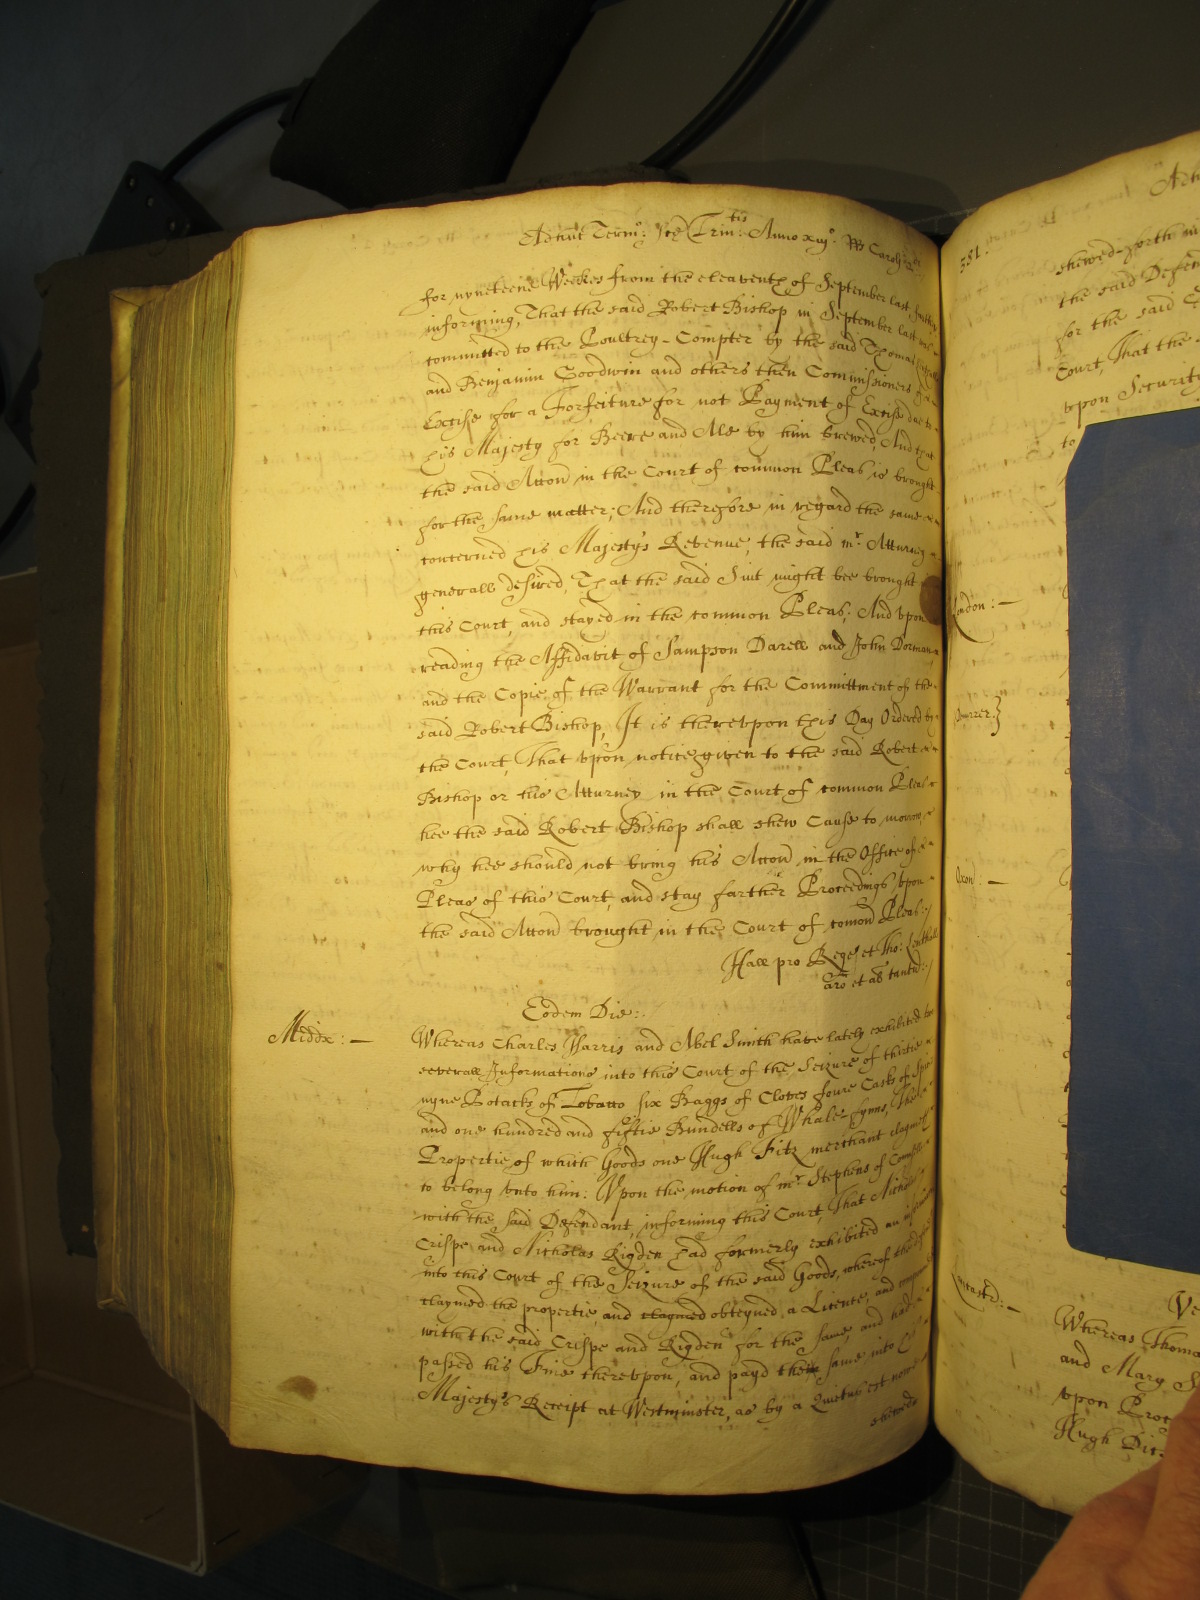 Adhuc Term: Sce Trin:tis Anno xiijo: Rs Caroli
for nyneteene Weekes from the eleaventh of September last
informing, That the said Robert Bishop in September last was
committed to the Poultrey-Compter by the said Thomas
and Benjamin Goodwin and others then Commissioners
Excise for a Forfeiture for not Payment of Excise due to
his Majesty for Beere and Ale by him brewed, And that
the said Accon in the Court of common Pleas is brought
for the same matter; And therefore in regard the same
concerned his Majestys Revenue, the said mr. Atturney
generall desired, That the said Suit might bee brought
this Court, and stayed in the common Pleas; And vpon
reading the Affidavit of Sampson Darell and John Dorman,
and the Copie of the Warrant for the Committment of the
said Robert Bishop, It is therevpon this Day Ordered by
the Court, That vpon notice given to the said Robert
Bishop or his Atturney in the Court of common Pleas
hee the said Robert Bishop shall shew Cause to morrow,
why hee should not bring his Accon in the Office of
Pleas of this Court, and stay farther Proceedings vpon
the said Accon brought in the Court of comon Pleas:/
Hall pro Rege et Tho: Lenthall
aro et ab tantu:/
Eodem Die:
Middx: —
Whereas Charles Harris and Abel Smith have lately exhibited two
severall Informations into this Court of the Seizure of thirtie
nyne Potacks of Tobacco six Baggs of Cloves foure Casks of
and one hundred and fiftie Bundells of Whale-fynns, The
Propertie of which Goods one Hugh Fitz merchant claymed
to belong vnto him: Vpon the motion of mr. Stephens of Counsell
with the said Defendant, informing this Court, That Nicholas
Crispe and Nicholas Rigden had formerly exhibited an
into this Court of the Seizure of the said Goods, whereof the
claymed the propertie, and claymed obteyned a Licence, and
with the said Crispe and Rigden for the same, and had
passed his Fine therevpon, and payd the same into
Majestys Receipt at Westminster, as by a Quietus est nowe
shewed
551.
shewed-forth
the said Defen
for the said
Court, That the
vpon Security
to
London: —
Currer.}
Oxon: —
Lancastr: —
Whereas Thoma
and Mary S
vpon Proc
Hugh